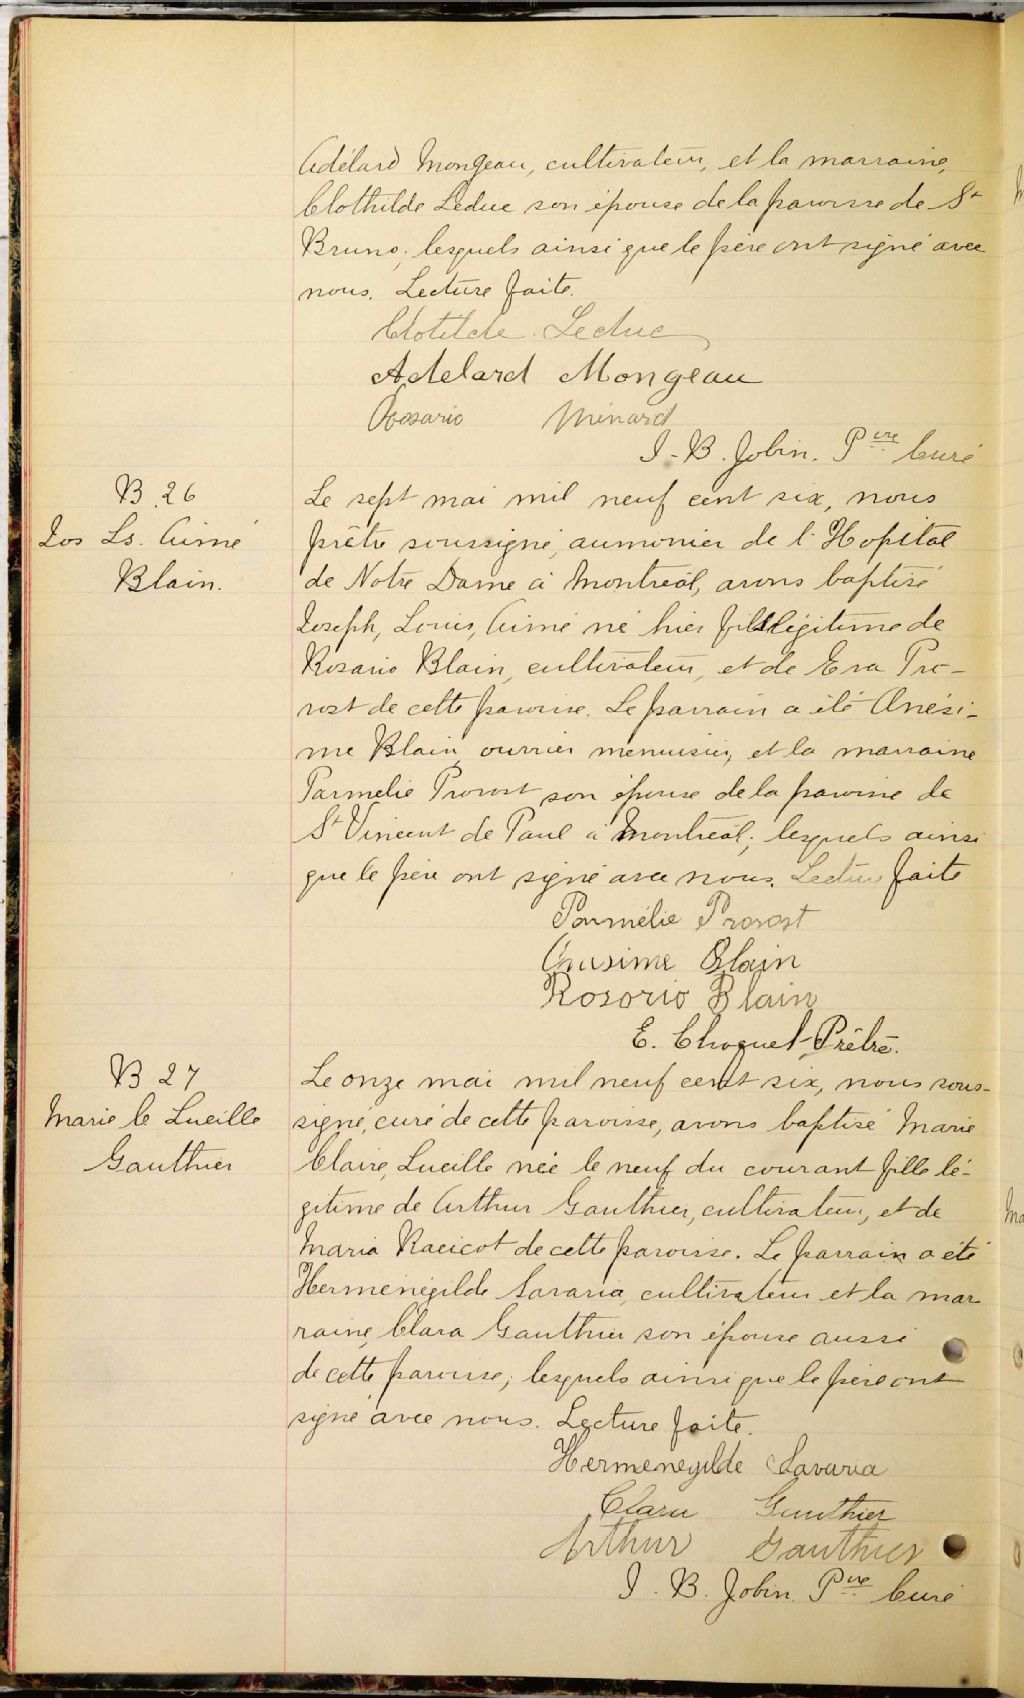 Adélard Mongeau, cultivateur, et la marraine,
Clothilde Leduc son épouse de la paroisse de St
Bruno; lesquels ainsi que le père ont signé avec
nous. Lecture faite.
Clotilde Leduc
Adelard Mongeau
Rosario Ménard
J-B. Jobin. Ptre Curé
B 26
Jos Ls. Aimé
Blain.
Le sept mai mil neuf cent six, nous
prêtre soussigné, aumonier de l'Hopital
de Notre Dame à Montréal, avons baptisé
Joseph, Louis, Aimé né hier fils légitime de
Rosario Blain, cultivateur, et de Eva Pro-
vost de cette paroisse. Le parrain a été Onési-
me Blain, ouvrier menuisier, et la marraine
Parmelie Provost son épouse de la paroisse de
St Vincent de Paul à Montréal; lesquels ainsi
que le père ont signé avec nous. Lecture faite
Parmélie Provost
Onesime Blain
Rosario Blain
E. Choquet Prêtre.
B 27
Marie C Lucille
Gauthier
Le onze mai mil neuf cent six, nous sous-
signé, curé de cette paroisse, avons baptisé Marie
Claire, Lucille née le neuf du courant fille lé-
gitime de Arthur Gauthier, cultivateur, et de
Maria Racicot de cette paroisse. Le parrain a été
Hermenégilde Savaria, cultivateur et la mar
raine, Clara Gauthier son épouse aussi
de cette paroisse; lesquels ainsi que le père ont
signé avec nous. Lecture faite.
Hermenegilde Savaria
Clara Gauthier
Arthur Gauthier
J. B. Jobin. Ptre Curé